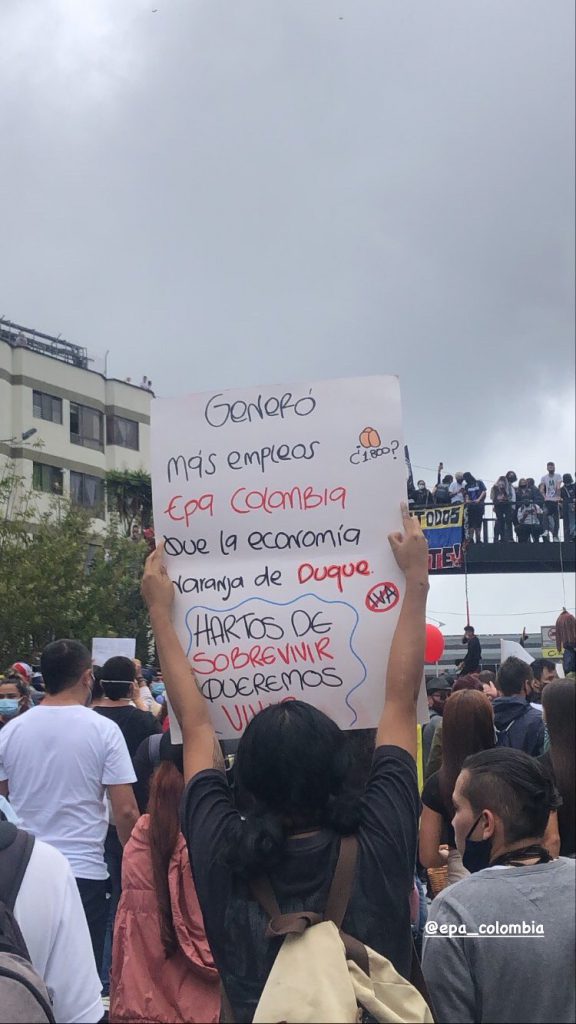 Generó
más empleos
Epa Colombia
¿1800?
que la economía
naranja de Duque.
IVA
HARTOS DE
SOBREVIVIR
QUEREMOS
VIVIR
TODOS
@epa_colombia